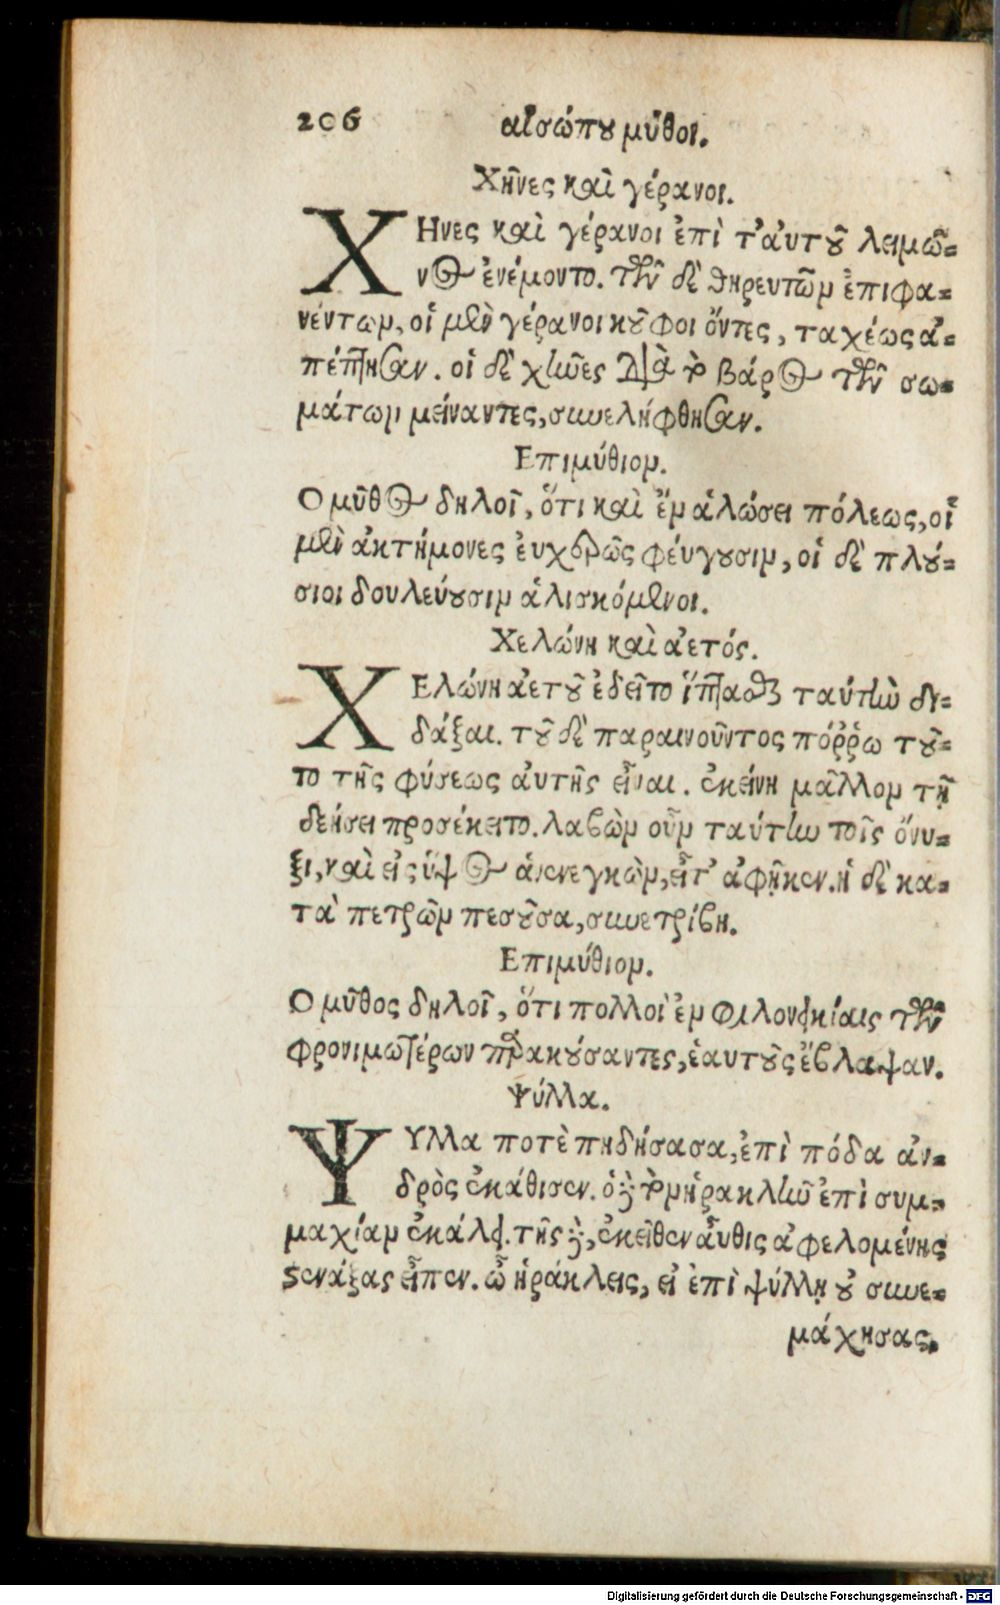 206 αἰσώπου μῦθοι.
Χῆνες καὶ γέρανοι.
ΧΗνες καὶ γέρανοι ἐπὶ τ' ἀυτοῦ λειμῶ-
νος ἐνέμοντο. τῶν δὲ θηρευτῶν ἐπιφα-
νέντων, οἱ μὲν γέρανοι κοῦφοι ὄντες, ταχέως ἀ-
πέπτησαν. οἱ δὲ χῆνες διὰ τὸ βάρος τῶν σω-
μάτων μείναντες, συνελήφθησαν.
Επιμύθιον.
Ο μῦθος δηλοῖ, ὅτι καὶ ἐν ἁλώσει πόλεως, οἱ
μὲν ἀκτήμονες ἐυχερῶς φέυγουσιν, οἱ δὲ πλού-
σιοι δουλεύουσιν ἁλισκόμενοι.
Χελώνη καὶ ἀετός.
ΧΕλώνη ἀετοῦ ἐδεῖτο ἵπτασθαι ταύτην δι-
δάξαι. τοῦ δὲ παραινοῦντος πόῤῥω τοῦ-
το τῆς φύσεως ἀυτῆς εἶναι. ἐκείνη μᾶλλον τῇ
δεήσει προσέκειτο. λαβὼν οὖν ταύτην τοῖς ὄνυ-
ξι, καὶ εἰς ὕψος ἀνενεγκὼν, εἶτ' ἀφῆκεν. ἡ δὲ κα-
τὰ πετρῶν πεσοῦσα, συνετρίβη.
Επιμύθιον.
Ο μῦθος δηλοῖ, ὅτι πολλοὶ ἐν φιλονεικίαις τῶν
φρονιμωτέρων παρακούσαντες, ἑαυτοὺς ἔβλαψαν.
Ψύλλα.
ΨΥλλα ποτὲ πηδήσασα, ἐπὶ πόδα ἀν-
δρὸς ἐκάθισεν. ὁ δὲ τὸν ἡρακλῆν ἐπὶ συμ-
μαχίαν ἐκάλει. τῆς δὲ, ἐκεῖθεν ἆυθις ἀφελομένης
στενάξας εἶπεν. ὦ ἡράκλεις, εἰ ἐπὶ ψύλλῃ οὐ συνε-
μάχησας,
Digitalisierung gefördert durch die Deutsche Forschungsgemeinschaft - DFG